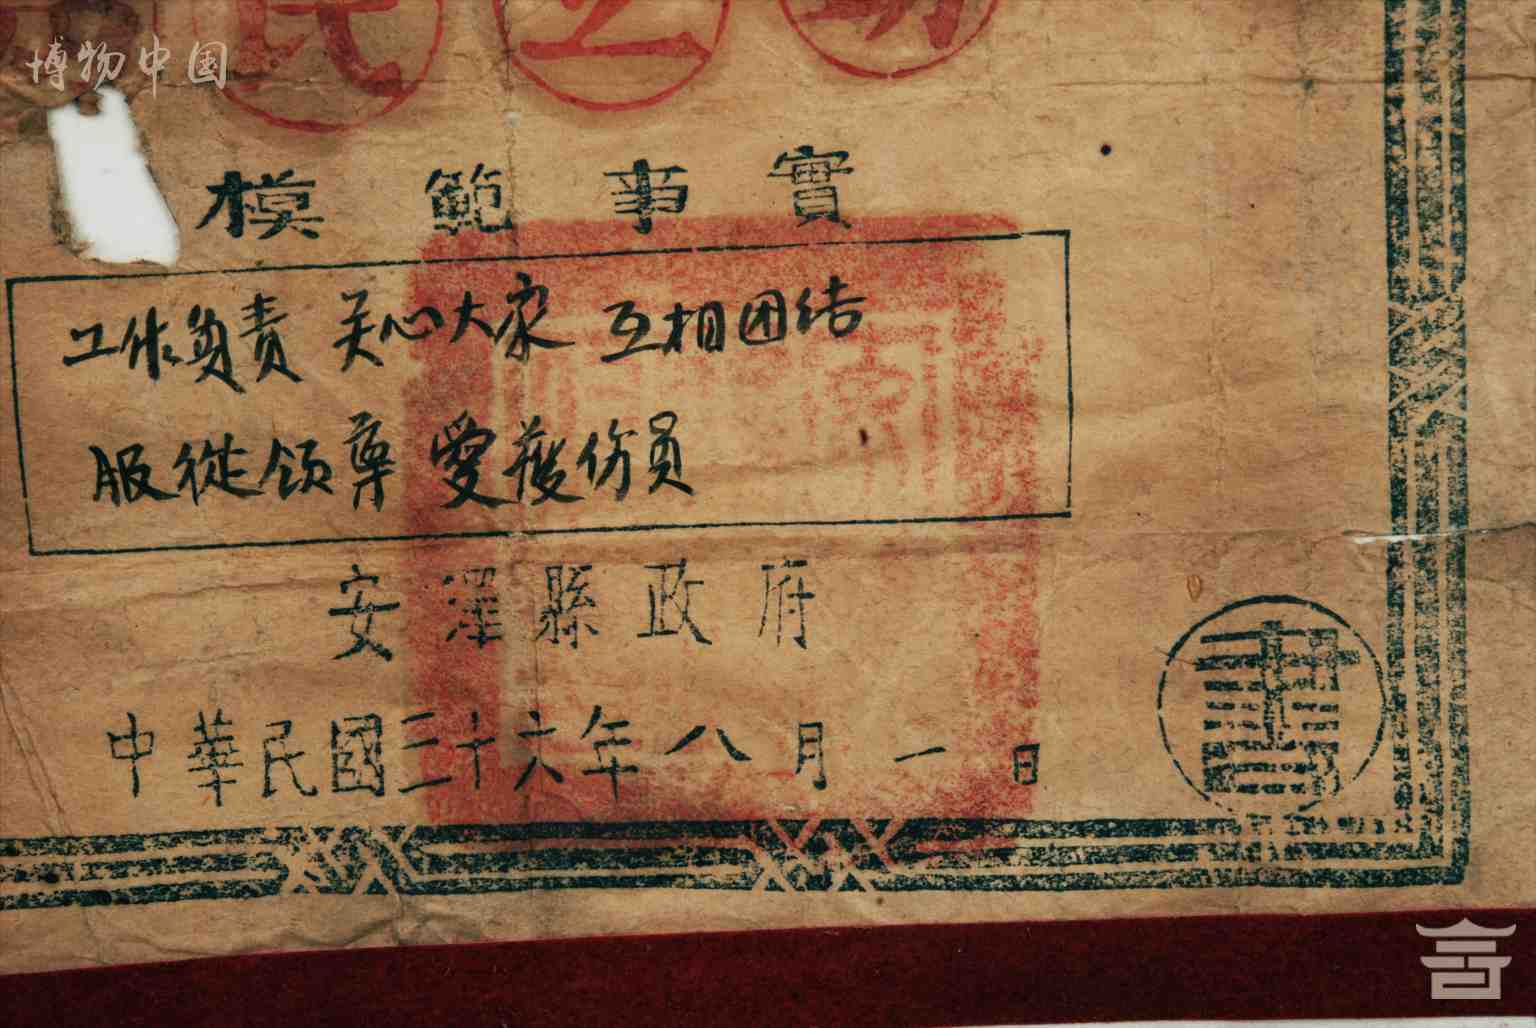 博物中国
民 工
模範事實
工作負责 关心大家 互相团结
服從领導 愛護伤员
安澤縣政府
中華民國三十六年八月一日
書